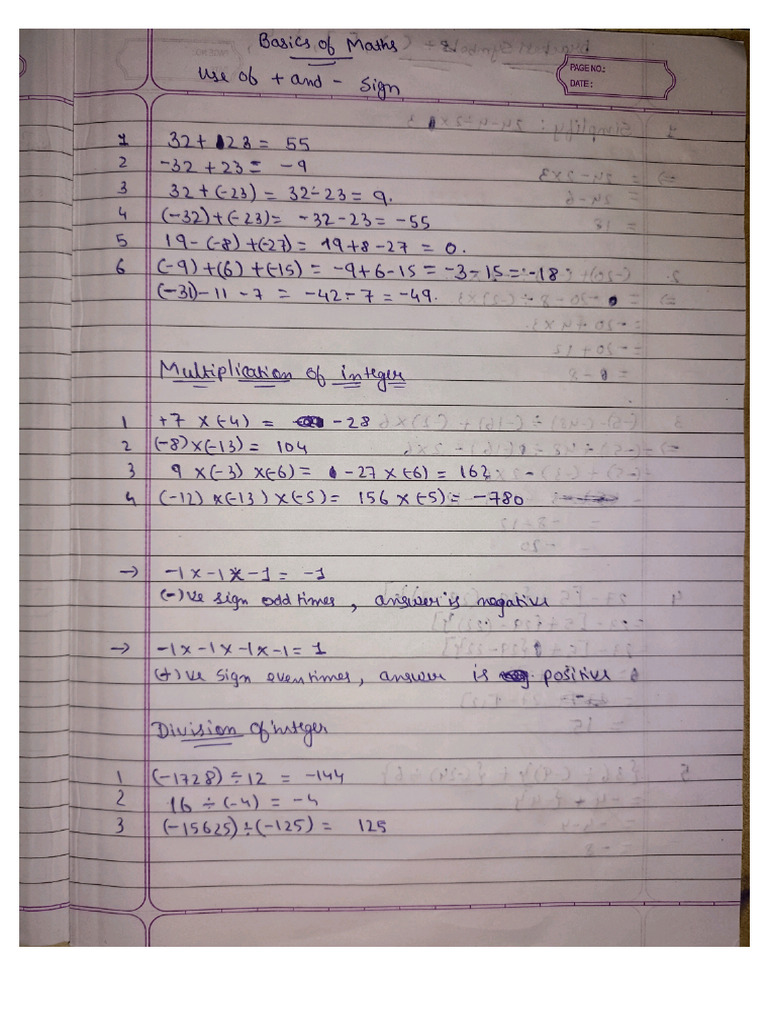 Basics of Maths
Use of + and - Sign
PAGE NO.:
DATE:
1 32 + 23 = 55
2 -32 + 23 = -9
3 32 + (-23) = 32 - 23 = 9.
4 (-32) + (-23) = -32 - 23 = -55
5 19 - (-8) + (-27) = 19 + 8 - 27 = 0.
6 (-9) + (6) + (-15) = -9 + 6 - 15 = -3 - 15 = -18
(-31) - 11 - 7 = -42 - 7 = -49.
Multiplication of integer
1 +7 x (-4) = -28
2 (-8) x (-13) = 104
3 9 x (-3) x (-6) = -27 x (-6) = 162
4 (-12) x (-13) x (-5) = 156 x (-5) = -780
→ -1 x -1 x -1 = -1
(-) ve sign odd times, answer is negative
→ -1 x -1 x -1 x -1 = 1
(+) ve sign even times, answer is positive
Division of integer
1 (-1728) ÷ 12 = -144
2 16 ÷ (-4) = -4
3 (-15625) ÷ (-125) = 125